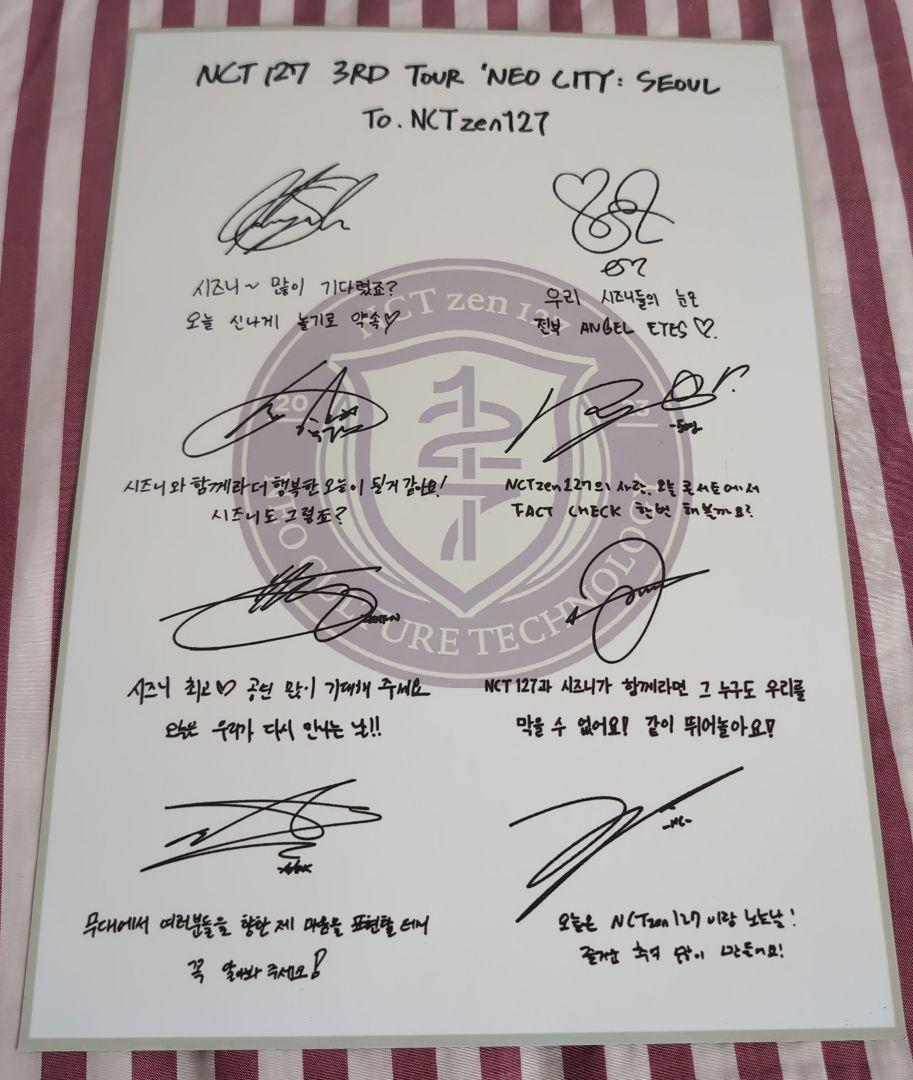 NCT 127 3RD TOUR 'NEO CITY: SEOUL
TO. NCTzen127
시즈니~ 많이 기다렸죠?
오늘 신나게 놀기로 약속♡
우리 시즈니들의 눈은
전부 ANGEL EYES♡.
NCT zen 127
20
23
127
NEO CULTURE TECHNOLOGY
시즈니와 함께라 더 행복한 오늘이 될거 같아요!
시즈니도 그렇죠?
NCTzen127의 사랑, 오늘 콘서트에서
FACT CHECK 한번 해볼까요?
시즈니 최고♡ 공연 많이 기대해 주세요
오늘은 우리가 다시 만나는 날!!
NCT 127과 시즈니가 함께라면 그 누구도 우리를
막을 수 없어요! 같이 뛰어놀아요!
무대에서 여러분들을 향한 제 마음을 표현할 테니
꼭 알아봐 주세요!
오늘은 NCTzen127이랑 노는날!
즐거운 추억 많이 만들어요!